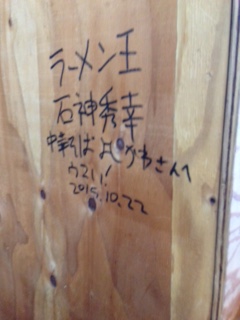 ラーメン王
石神秀幸
中華そばよしかわさんへ
ウマい!
2015.10.22